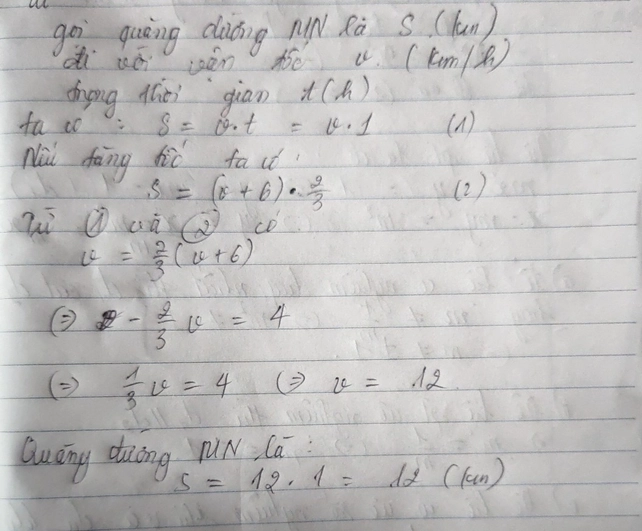 gọi quãng đường MN là S (km)
đi với vận tốc v (km/h)
trong thời gian t (h)
ta có : S = v.t = v.1 (1)
Nếu tăng tốc ta có :
S = (v + 6) . 2/3 (2)
Từ (1) và (2) có
v = 2/3 (v+6)
(=) - 2/3 v = 4
(=) 1/3 v = 4 (=) v = 12
Quãng đường MN là :
S = 12 . 1 = 12 (km)